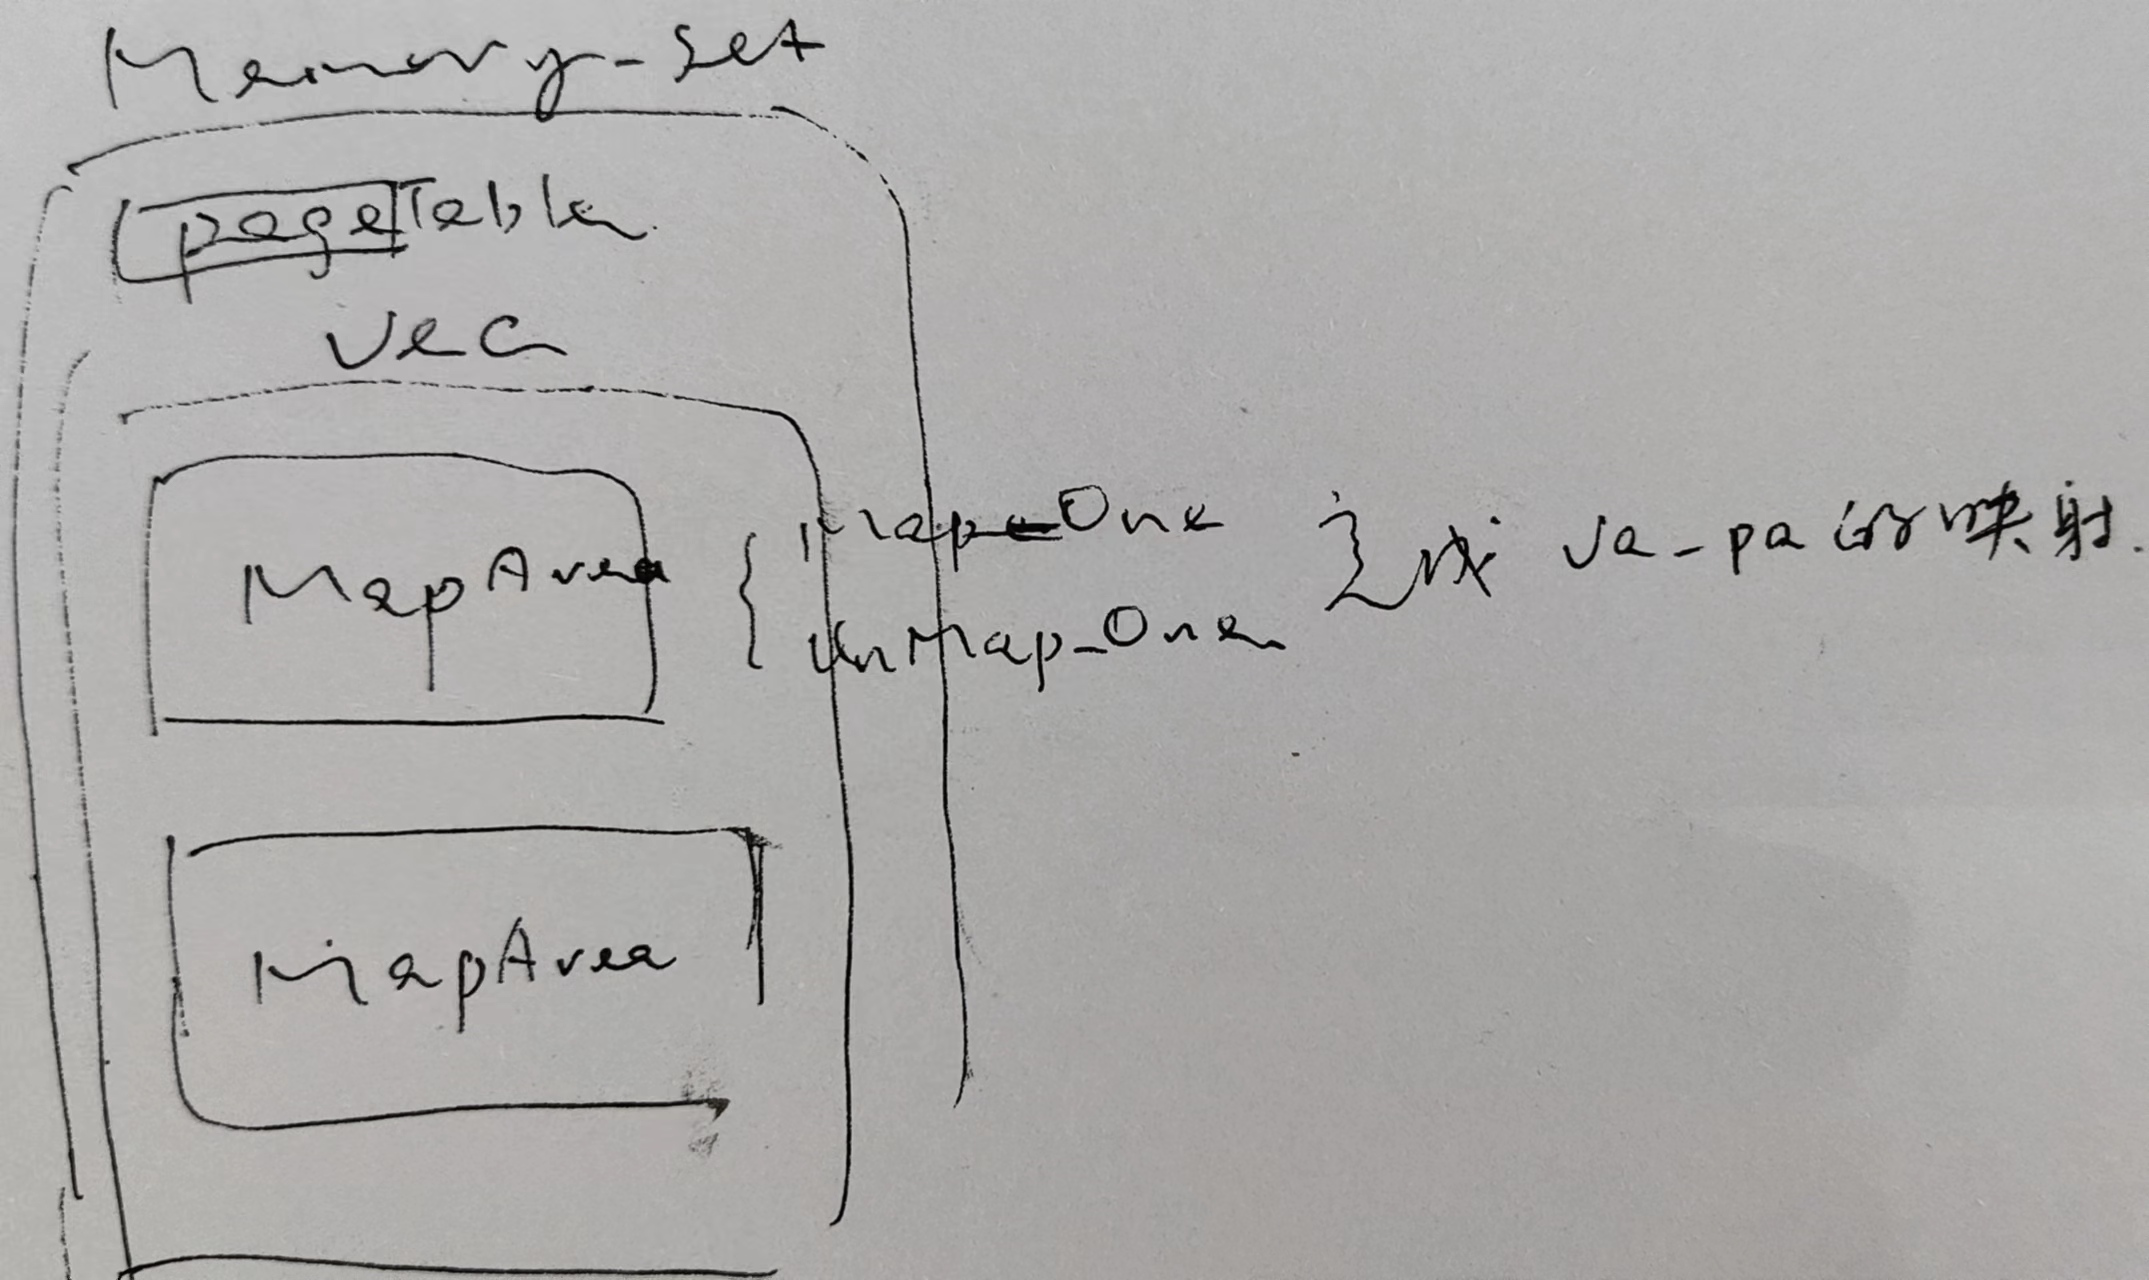 Memory-Set
pageTable
Vec
MapArea
Map_One
UnMap_One
完成 va-pa的映射.
MapArea